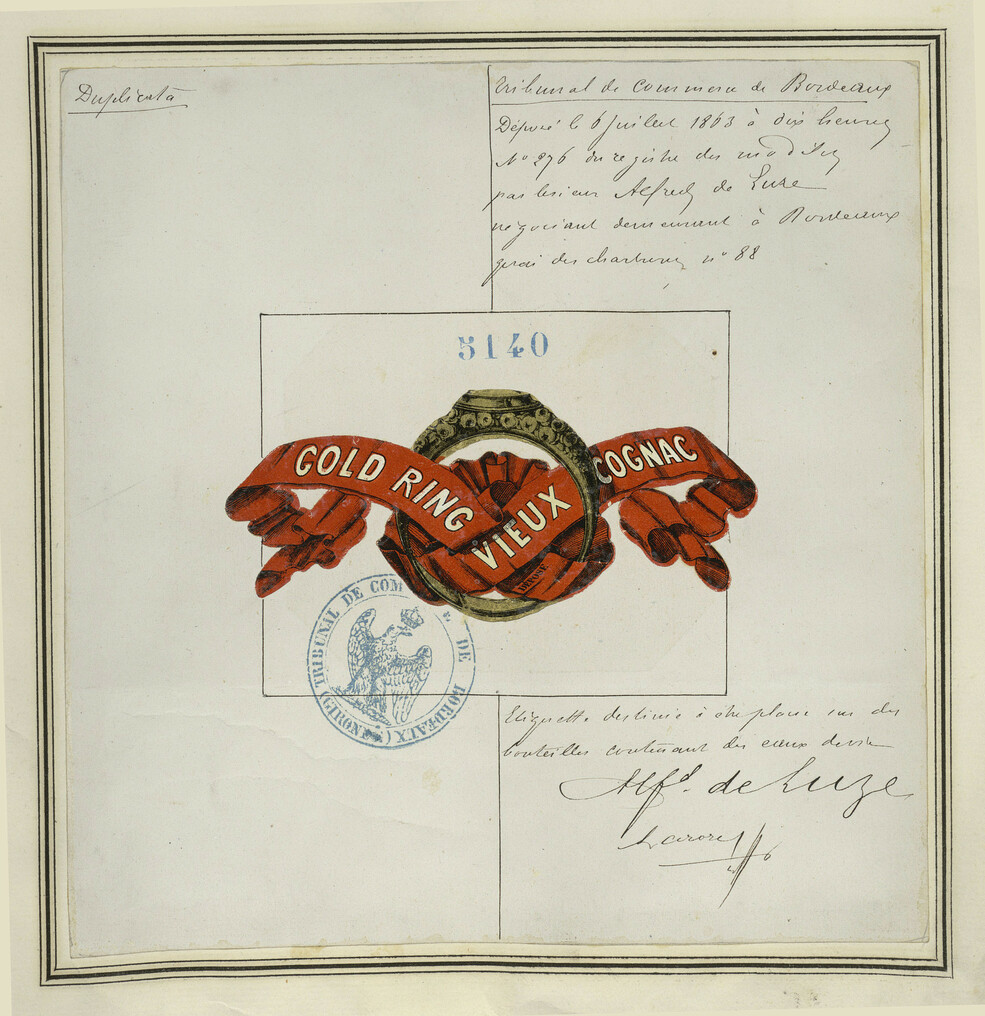 Duplicata
Tribunal de Commerce de Bordeaux
Déposé le 6 Juillet 1863 à dix heures
N° 276 du registre des modèles
par lesieur Alfred de Luze
négociant demeurant à Bordeaux
quai des chartrons n° 88
5140
GOLD RING
VIEUX
COGNAC
DÉPOSÉ
TRIBUNAL DE COM DE BORDEAUX
(GIRONDE)
Etiquette destinée à être placée sur des
bouteilles contenant des eaux devie
Alf.d de Luze